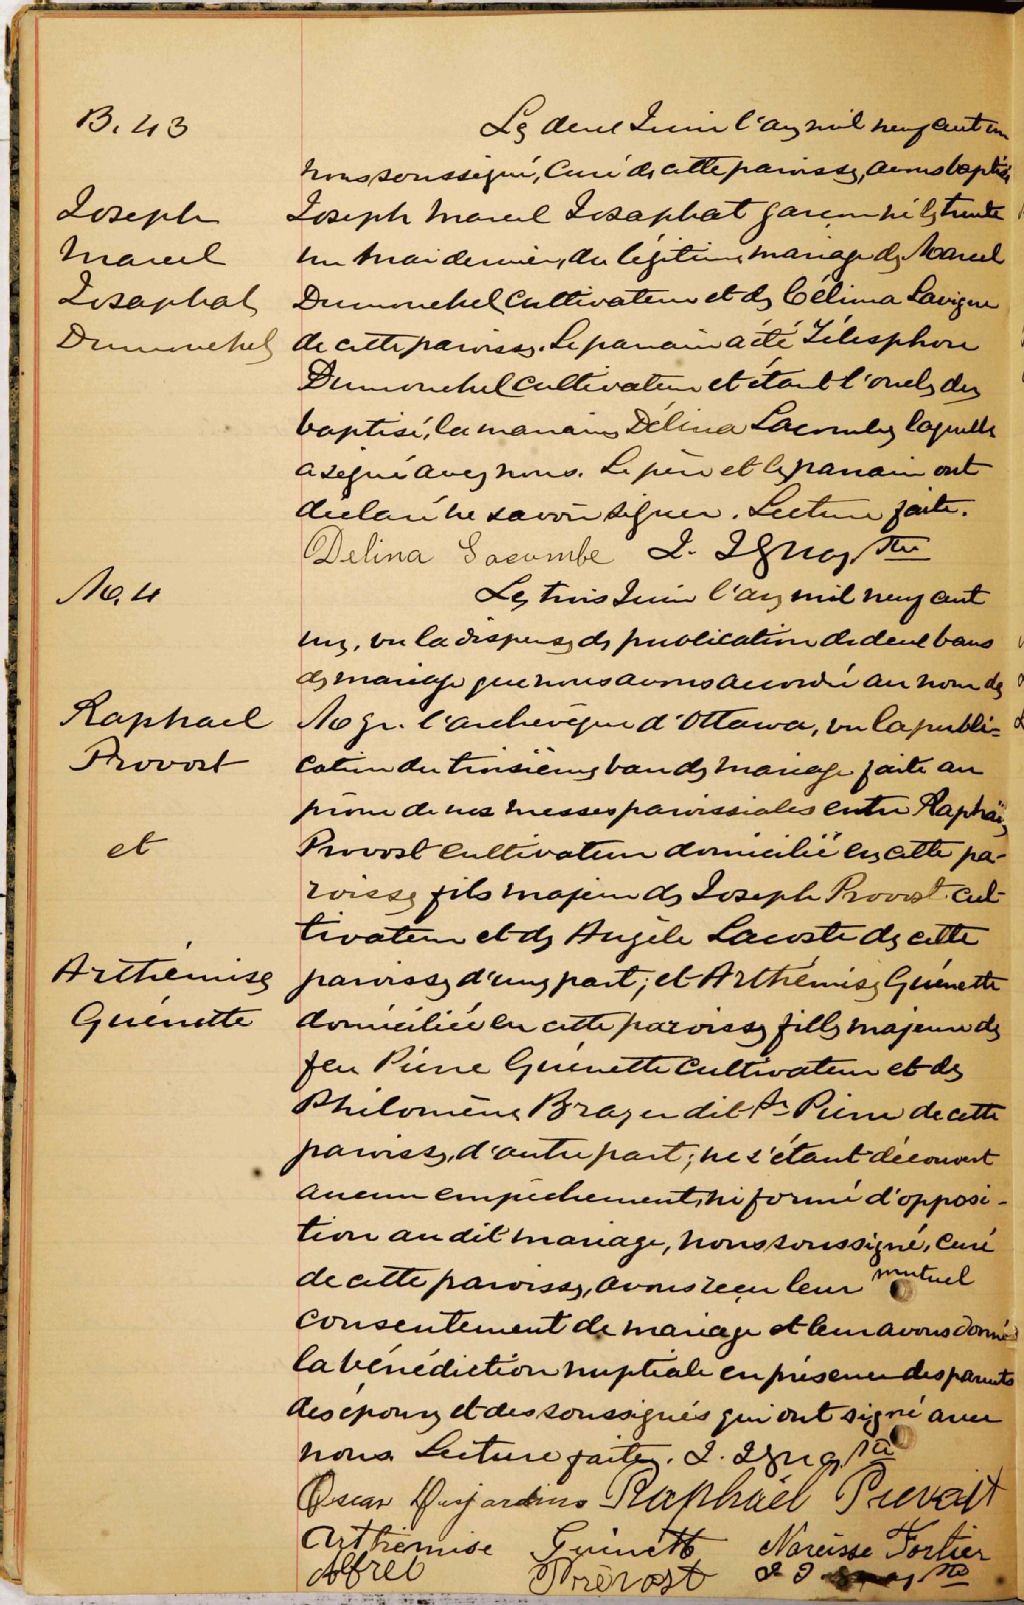 B. 43
Le deux Juin l'an mil neuf cent un
nous soussigné, curé de cette paroisse, avons baptisé
Joseph
Marcel
Josaphat
Dumouchel
Joseph Marcel Josaphat garçon né le trente
un Mai dernier, du légitime mariage de Marcel
Dumouchel cultivateur et de Célima Lavigne
de cette paroisse. Le parrain a été Télesphore
Dumouchel cultivateur et étant l'oncle du
baptisé, la marraine Délina Lacombe laquelle
a signé avec nous. Le père et le parrain ont
déclaré ne savoir signer. Lecture faite.
Delina Lacombe ptre
M. 4
Le trois Juin l'an mil neuf cent
un, vu la dispense de publication de deux bans
de mariage que nous avons accordée au nom de
Raphael
Provost
et
Arthémise
Guénette
Mgr. l'archevêque d'Ottawa, vu la publi=
cation du troisième ban de mariage faite au
prône de nos messes paroissiales entre Raphaël
Provost cultivateur domicilié en cette pa-
roisse fils majeur de Joseph Provost cul-
tivateur et de Angèle Lacoste de cette
paroisse d'une part; et Arthémise Guénette
domiciliée en cette paroisse fille majeure de
feu Pierre Guénette cultivateur et de
Philomène Brazeu dit St Pierre de cette
paroisse, d'autre part; ne s'étant découvert
aucun empêchement, ni formé d'opposi-
tion au dit mariage, nous soussigné, curé
de cette paroisse, avons reçu leur mutuel
consentement de mariage et leur avons donné
la bénédiction nuptiale en présence des parents
des époux et des soussignés qui ont signé avec
nous. Lecture faite. ptre
Oscar Desjardins Raphaël Prevost
Arthémise Guénette Narcisse Fortier
Alfred Prévost ptre